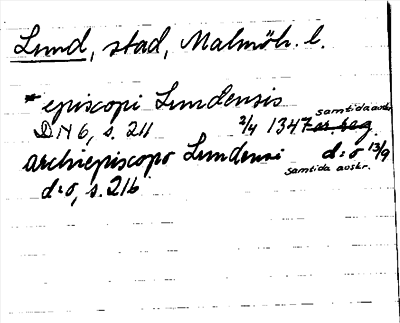 Lund, stad, Malmöh. l.
* episcopi Lundensis
samtida avskr.
DN 6, s. 211 2/4 1347
archiepiscopo Lundensi d:o 13/9
samtida avskr.
d:o, s. 216